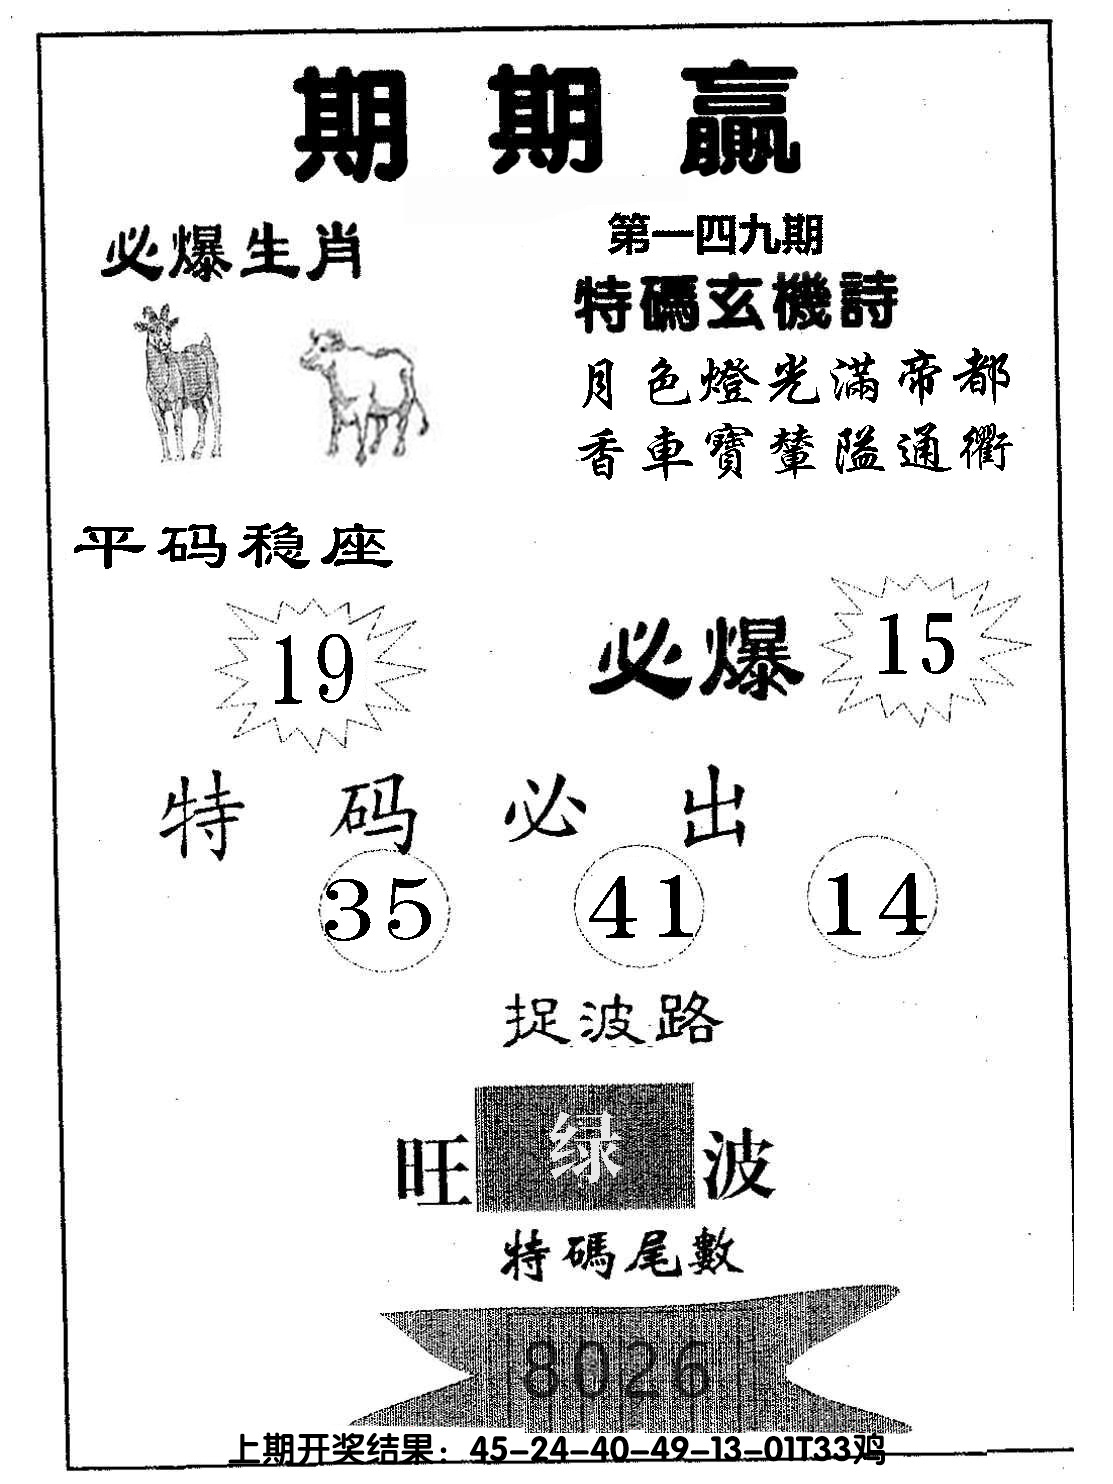 期期赢
必爆生肖
第一四九期
特碼玄機詩
月色燈光滿帝都
香車寶輦隘通衢
平码稳座
19
必爆
15
特码必出
35 41 14
捉波路
旺绿波
特碼尾數
8026
上期开奖结果：45-24-40-49-13-01T33鸡